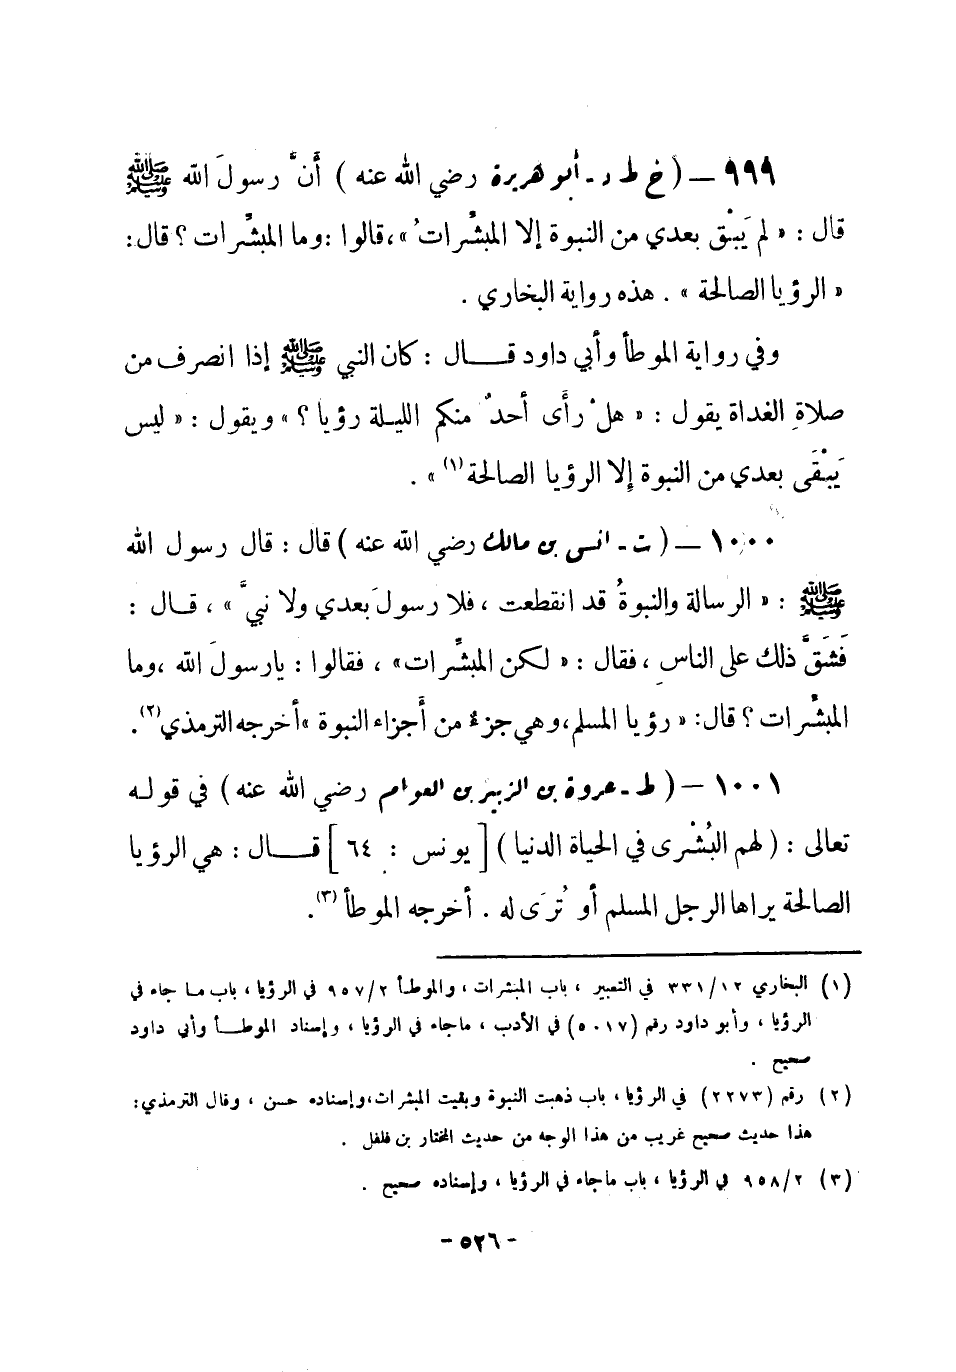 ٩٩٩ – (خ ط د - أبو هريرة رضي الله عنه) أَنَّ رسولَ الله ﷺ
قال: «لم يَبْق بعدي من النبوة إلا المبشِّراتُ»، قالوا: وما المبشِّرات؟ قال:
«الرؤيا الصالحة». هذه رواية البخاري.
وفي رواية الموطأ وأبي داود قال: كان النبي ﷺ إذا انصرف من
صلاةِ الغداة يقول: «هلْ رأَى أحدٌ منكم الليلة رؤيا؟» ويقول: «ليس
يَبْقَى بعدي من النبوة إلا الرؤيا الصالحة (١)».
١٠٠٠ – (ت - أنس بن مالك رضي الله عنه) قال: قال رسول الله
ﷺ: «الرسالة والنبوةُ قد انقطعت، فلا رسولَ بعدي ولا نبيَّ»، قال:
فَشَقَّ ذلك على الناسِ، فقال: «لكن المبشِّرات»، فقالوا: يارسولَ الله، وما
المبشِّرات؟ قال: «رؤيا المسلم، وهي جزءٌ من أَجزاء النبوة» أخرجه الترمذي (٢).
١٠٠١ – (ط - عروة بن الزبير بن العوام رضي الله عنه) في قوله
تعالى: (لهم البُشْرى في الحياة الدنيا) [يونس: ٦٤] قال: هي الرؤيا
الصالحة يراها الرجل المسلم أو تُرَى له. أخرجه الموطأ (٣).
(١) البخاري ٣٣١/١٢ في التعبير، باب المبشرات، والموطأ ٩٥٧/٢ في الرؤيا، باب ما جاء في
الرؤيا، وأبو داود رقم (٥٠١٧) في الأدب، ماجاء في الرؤيا، وإسناد الموطأ وأبي داود
صحيح.
(٢) رقم (٢٢٧٣) في الرؤيا، باب ذهبت النبوة وبقيت المبشرات، وإسناده حسن، وقال الترمذي:
هذا حديث صحيح غريب من هذا الوجه من حديث المختار بن فلفل.
(٣) ٩٥٨/٢ في الرؤيا، باب ماجاء في الرؤيا، وإسناده صحيح.
- ٥٢٦ -